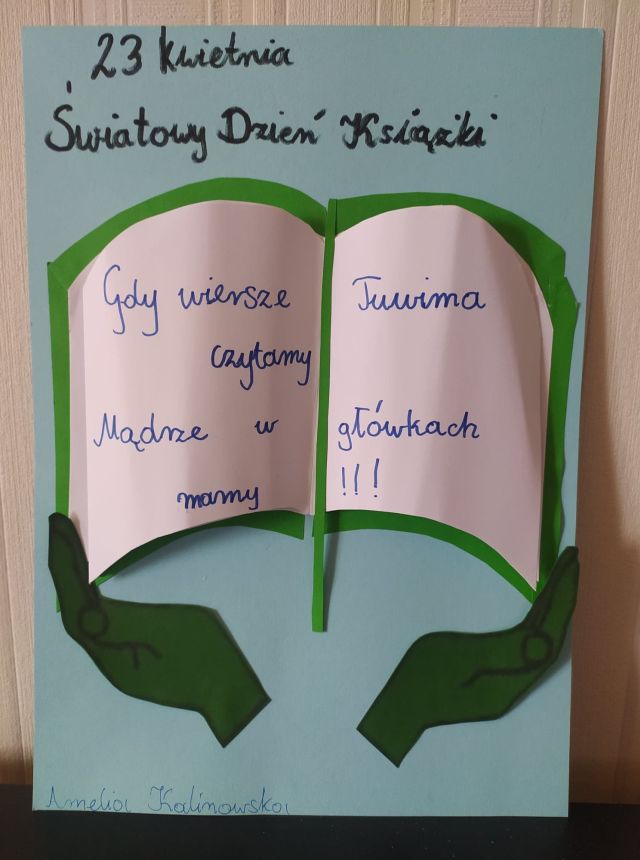 23 kwietnia
Światowy Dzień Książki
Gdy wiersze Tuwima
czytamy
Mądrze w główkach
mamy !!!
Amelia Kalinowska